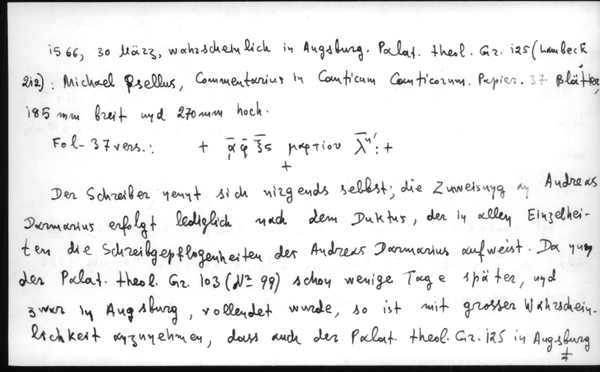 1566, 30 März, wahrscheinlich in Augsburg. Palat. theol. Gr. 125 (Lambeck
212): Michael Psellus, Commentarius in Canticum Canticorum. Papier. 37 Blätter,
185 mm breit und 270 mm hoch.
Fol. 37 vers.: + ͵αφξς μαρτίου λη': +
+
Der Schreiber nennt sich nirgends selbst; die Zuweisung an Andreas
Darmarius erfolgt lediglich nach dem Duktus, der in allen Einzelhei-
ten die Schreibgepflogenheiten des Andreas Darmarius aufweist. Da nun
der Palat. theol. Gr. 103 (No 99) schon wenige Tage später, und
zwar in Augsburg, vollendet wurde, so ist mit grosser Wahrschein-
lichkeit anzunehmen, dass auch der Palat. theol. Gr. 125 in Augsburg